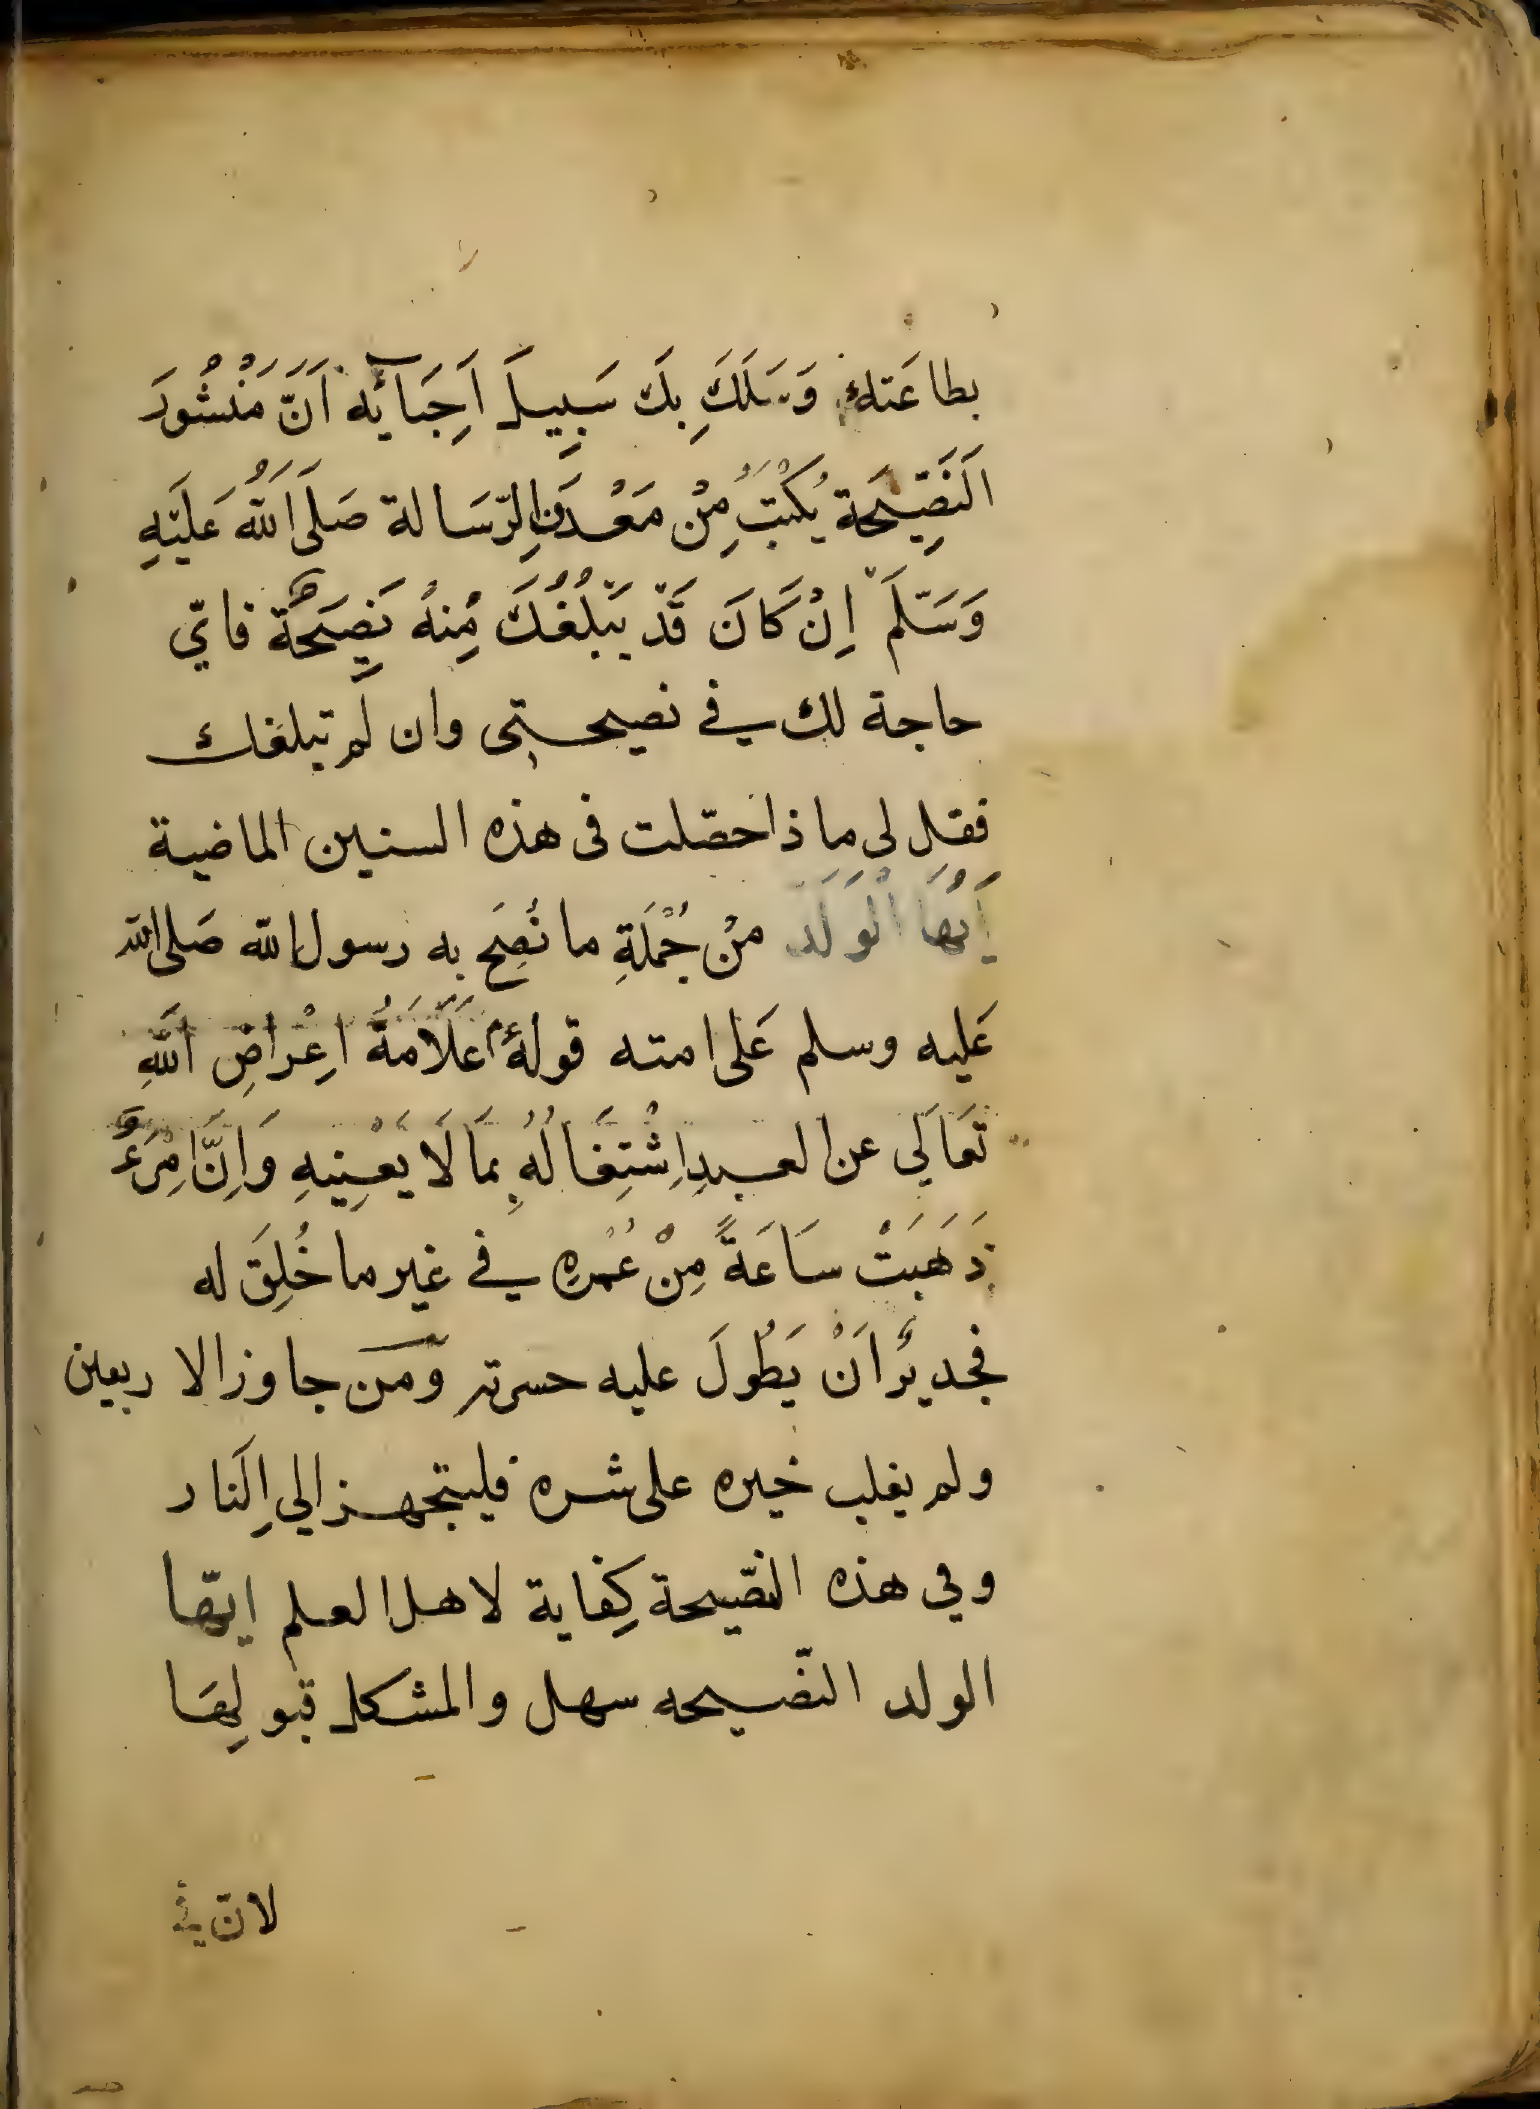 بطاعَتك وَسَلَكَ بِكَ سَبِيلَ اَحِبَائِه اَنَّ مَنْشُورَ
اَلنَصِيْحَة يُكْتَبُ مِنْ مَعْدَنِ الرِّسَالة صَلَى اَللّٰهُ عَلَيْهِ
وَسَلَّمَ اِنْ كَانَ قَدْ يَبْلُغُكَ مِنهُ نَصِيحَةٌ فايّ
حاجة لك في نصيحتى وان لَم تبلغك
فقل لى ما ذا حصّلت فى هذه السنين الماضية
اَيُّهَا الْوَلَدُ مِنْ جُمْلَةِ ما نُصِحَ به رسول الله صَلى الله
عَليه وسلم عَلى امته قولهُ عَلَامَةُ اِعْراضِ اَللّٰهِ
تَعَالَي عن العبدِ اِشْتِغَالُهُ بِمَا لَا يَعْنِيهِ وَاِنَّ اِمْرَءٌ
ذَهَبَتْ سَاعَةً مِنْ عُمْرِهِ في غير ما خُلِقَ له
فجديرٌ اَنْ يَطُولَ عليه حسرته وَمَن جاوز الاربعين
ولم يغلب خيره على شره فليتجهز الي اِلَنار
وفي هذه النصّيحة كِفاية لاهل العلم ايّها
الولد النصّيحه سهل والمشكل قبولِهَا
لانّ في